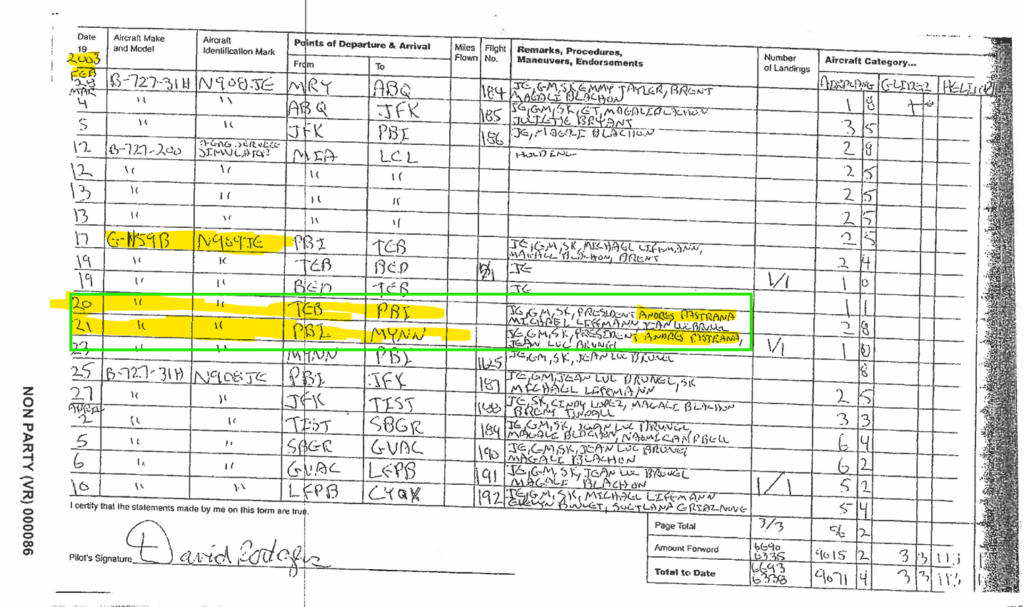 Date 19 Aircraft Make and Model Aircraft Identification Mark Points of Departure & Arrival From To Miles Flown Flight No. Remarks, Procedures, Maneuvers, Endorsements Number of Landings Aircraft Category...
2003 AIRPLANE GLIDER
FEB 28 B-727-31H N908JE MRY ABQ 184 JE, GM, SK, BRENT
MAGALE BLACHON
MAR 4 " " ABQ JFK 185 JE, GM, SK, ET, MAGALE BLACHON 1 8
JULIETTE BRYANT
5 " " JFK PBI 186 JE, MAGALE BLACHON 3 5
12 B-727-200 SIMULATOR MIA LCL 2 8
12 " " " " 2 5
13 " " " " 2 5
13 " " " " 2 5
17 G-1159B N909JE PBI TEB JE, GM, SK, MICHAEL LIFFMANN, 2 5
MAGALE BLACHON, BRENT
19 " " TEB BED JE 2 4
19 " " BED TEB JE 1/1 1 0
20 " " TEB PBI JE, GM, SK, PRESIDENT ANDRES PASTRANA 1 1
MICHAEL LIFFMANN, JEAN LUC BRUNEL
21 " " PBI MYNN JE, GM, SK, PRESIDENT ANDRES PASTRANA, 2 8
JEAN LUC BRUNEL
23 " " MYNN PBI 1625 JE, GM, SK, JEAN LUC BRUNEL 1/1 1 0
25 B-727-31H N908JE PBI JFK 187 JE, GM, JEAN LUC BRUNEL, SK 8
MICHAEL LIFFMANN
27 " " JFK TIST 188 JE, SK, CINDY LOPEZ, MAGALE BLACHON 2 5
BRENT TINDALL
APRIL 2 " " TIST SBGR 189 JE, GM, SK, JEAN LUC BRUNEL, 3 3
MAGALE BLACHON, NAOMI CAMPBELL
5 " " SBGR GVAC 190 JE, GM, SK, JEAN LUC BRUNEL 6 4
MAGALE BLACHON
6 " " GVAC LFPB 191 JE, GM, SK, JEAN LUC BRUNEL 6 2
MAGALE BLACHON
10 " " LFPB CYQX 192 JE, GM, SK, MICHAEL LIFFMANN 1/1 5 2
5 4
I certify that the statements made by me on this form are true.
Page Total 3/3 56 2
Amount Forward 6690 6335 9015 2 3 3 113
Total to Date 6693 6338 9071 4 3 3 113
Pilot's Signature David Rodgers
NON PARTY (VR) 000086